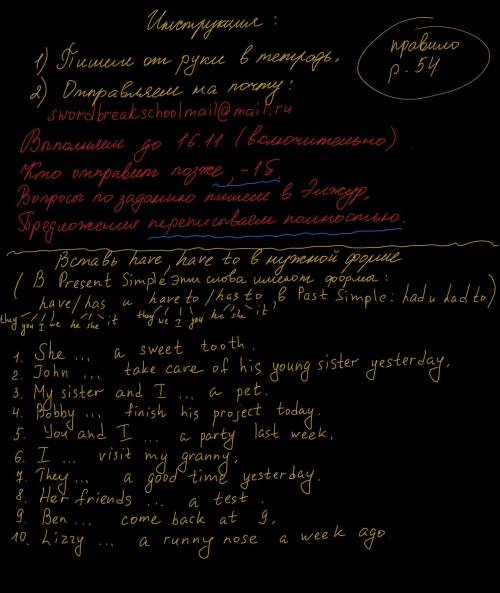 Инструкция:
1) Пишем от руки в тетрадь.
2) Отправляем на почту:
swordbreakschoolmail@mail.ru
правило
р. 54
Выполняем до 16.11 (включительно)
Кто отправит позже, -1б.
Вопросы по заданию пишем в Элжур.
Предложения переписываем полностью.
Вставь have, have to в нужной форме
(В Present Simple эти слова имеют формы:
have/has и have to/has to, в Past Simple: had и had to)
they you I we he she it they we I you he she it
1. She ... a sweet tooth.
2. John ... take care of his young sister yesterday.
3. My sister and I ... a pet.
4. Bobby ... finish his project today.
5. You and I ... a party last week.
6. I ... visit my granny.
7. They ... a good time yesterday.
8. Her friends ... a test.
9. Ben ... come back at 9.
10. Lizzy ... a runny nose a week ago.